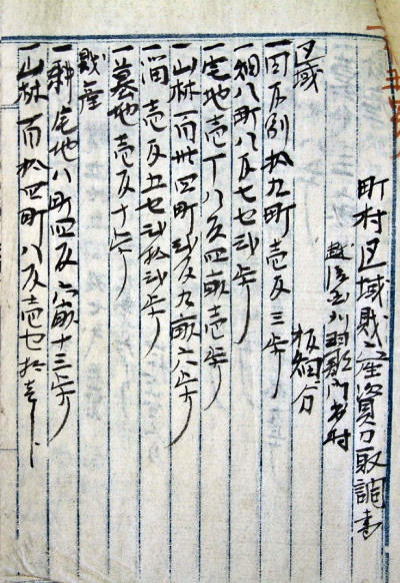 町村区域財産資力取調書
板畑分
区域
一田反別拾九町壱反三歩
一畑八町八反七セ弐歩
一宅地壱丁八反四畝壱歩
一山林百廿四町弐反九畝六歩
一溜壱反五セ弐拾弐歩
一墓地壱反十歩
財産
一耕宅地八町四反六畝十三歩
一山林百拾四町八反壱セ拾